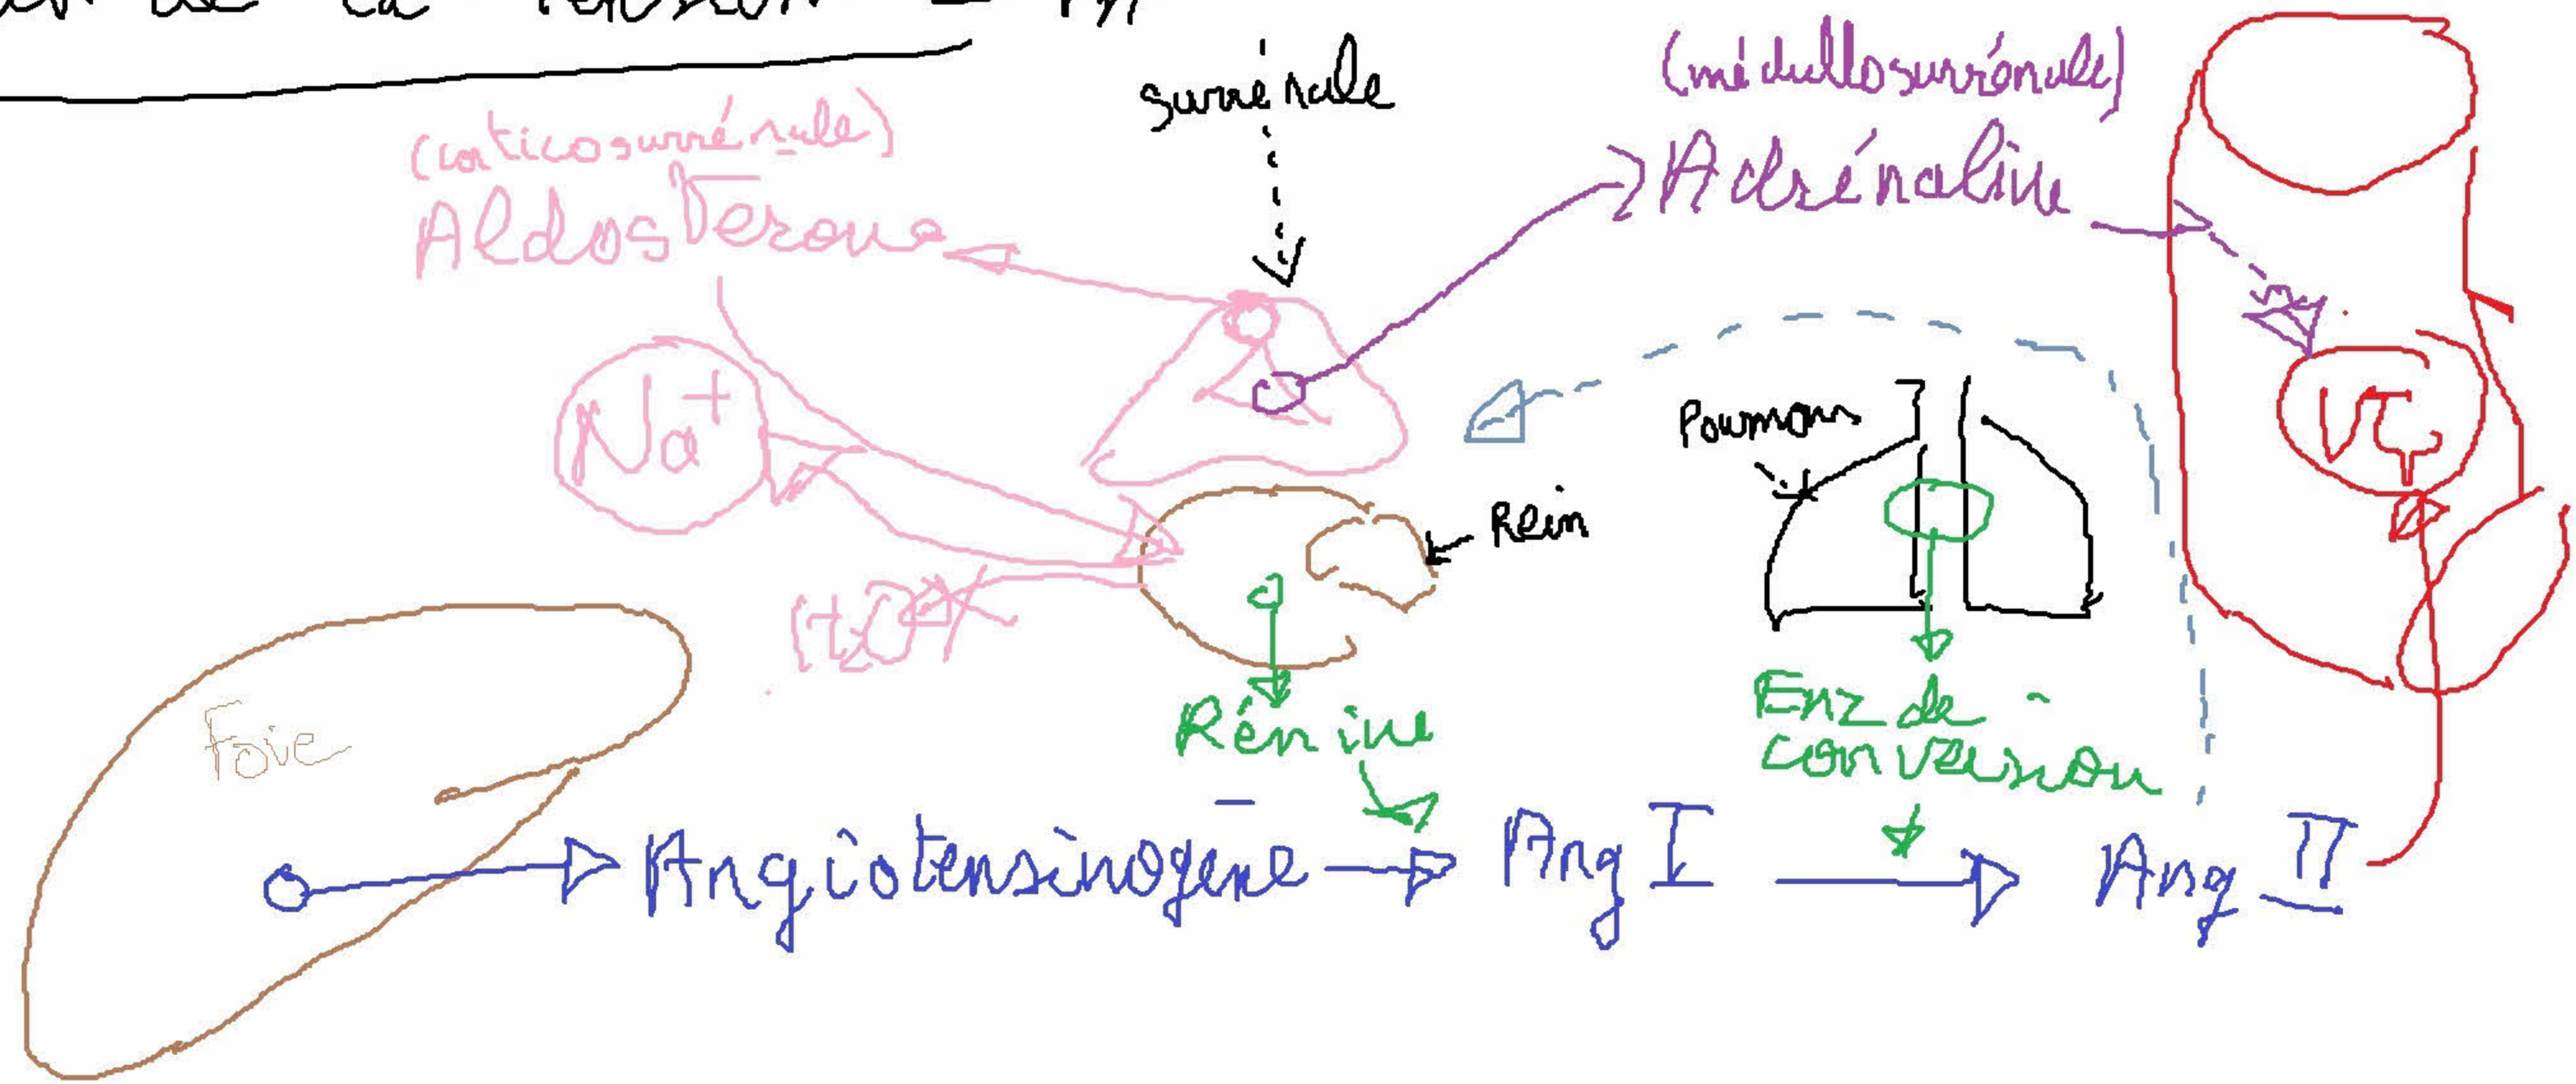 de la Tension
surrénale
(médullosurrénale)
(corticosurrénale)
Adrénaline
Aldosterone
Na+
Poumons
VC
Rein
H2O
Foie
Rénine
Enz de
conversion
Angiotensinogène
Ang I
Ang II